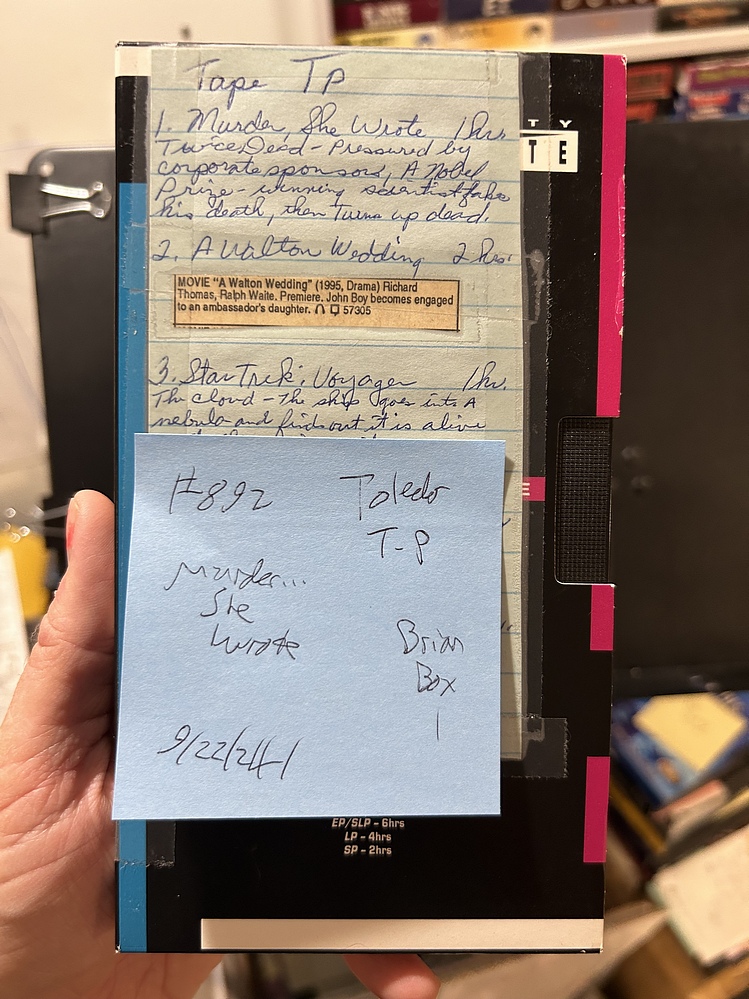 Tape TP
1. Murder, She Wrote 1hr.
Twice Dead - Pressured by
corporate sponsors, A Nobel
Prize - winning scientist fakes
his death, then turns up dead.
2. A Walton Wedding 2 hrs.
MOVIE "A Walton Wedding" (1995, Drama) Richard
Thomas, Ralph Waite. Premiere. John Boy becomes engaged
to an ambassador's daughter. 57305
3. Star Trek: Voyager 1hr.
The Cloud - The ship goes into A
nebula and finds out it is alive
T Y
T E
E
#892
Toledo
T-P
Murder...
She
Wrote
Brian
Box
1
9/22/24-1
EP/SLP - 6hrs
LP - 4hrs
SP - 2hrs